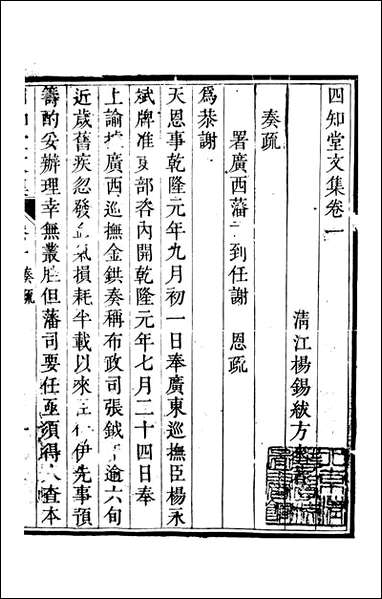 四知堂文集卷一
清江楊錫紱方
奏疏
署廣西藩 到任謝 恩疏
爲恭謝
天恩事乾隆元年九月初一日奉廣東巡撫臣楊永
斌牌准吏部咨內開乾隆元年七月二十四日奉
上諭據廣西巡撫金鉷奏稱布政司張鉞年逾六旬
近歲舊疾忽發血氣損耗半載以來 伊先事預
籌酌妥辦理幸無叢脞但藩司要任亟須得人查本
奏疏